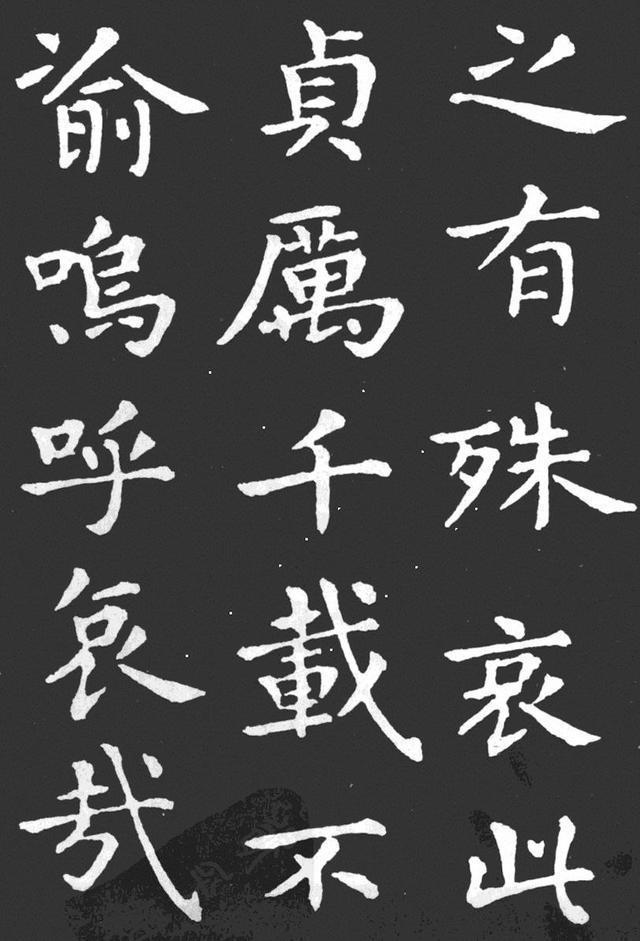 之有殊哀此
貞厲千載不
渝嗚呼哀哉